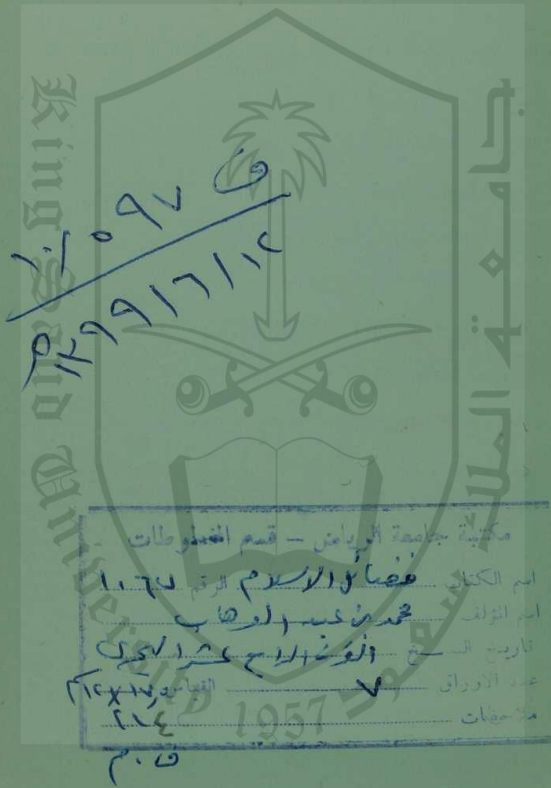 ف ١٠٥٩٧
١٣٩٩/٦/١٢ م
King Saud University
جامعة الملك سعود
1957
مكتبة جامعة الرياض – قسم المخطوطات
اسم الكتاب فضائل الإسلام الرقم ١٠٦٧
اسم المؤلف محمد بن عبد الوهاب
تاريخ النسخ القرن الرابع عشر الهجري
عدد الأوراق ٧ القياس
ملاحظات ٢١٤
ف . م